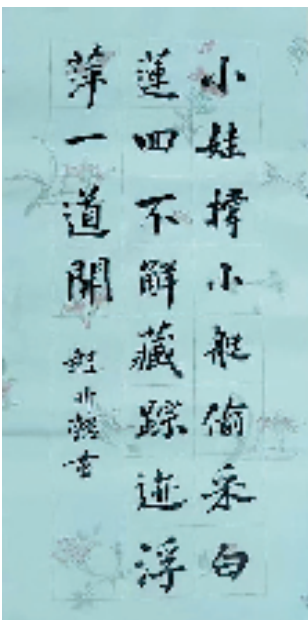 小娃撑小艇偷采白
蓮回不解藏踪迹浮
萍一道開